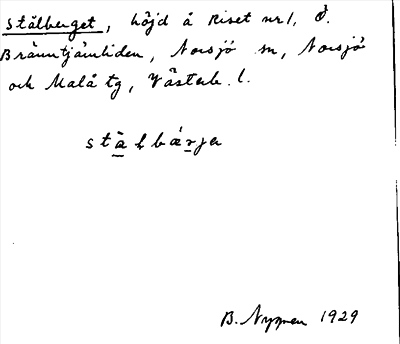 Stålberget, höjd å Riset nr 1, Ö.
Bränntjämliden, Norsjö sn, Norsjö
och Malå tg, Västerb. l.
stålbärje
B. Nyman 1929